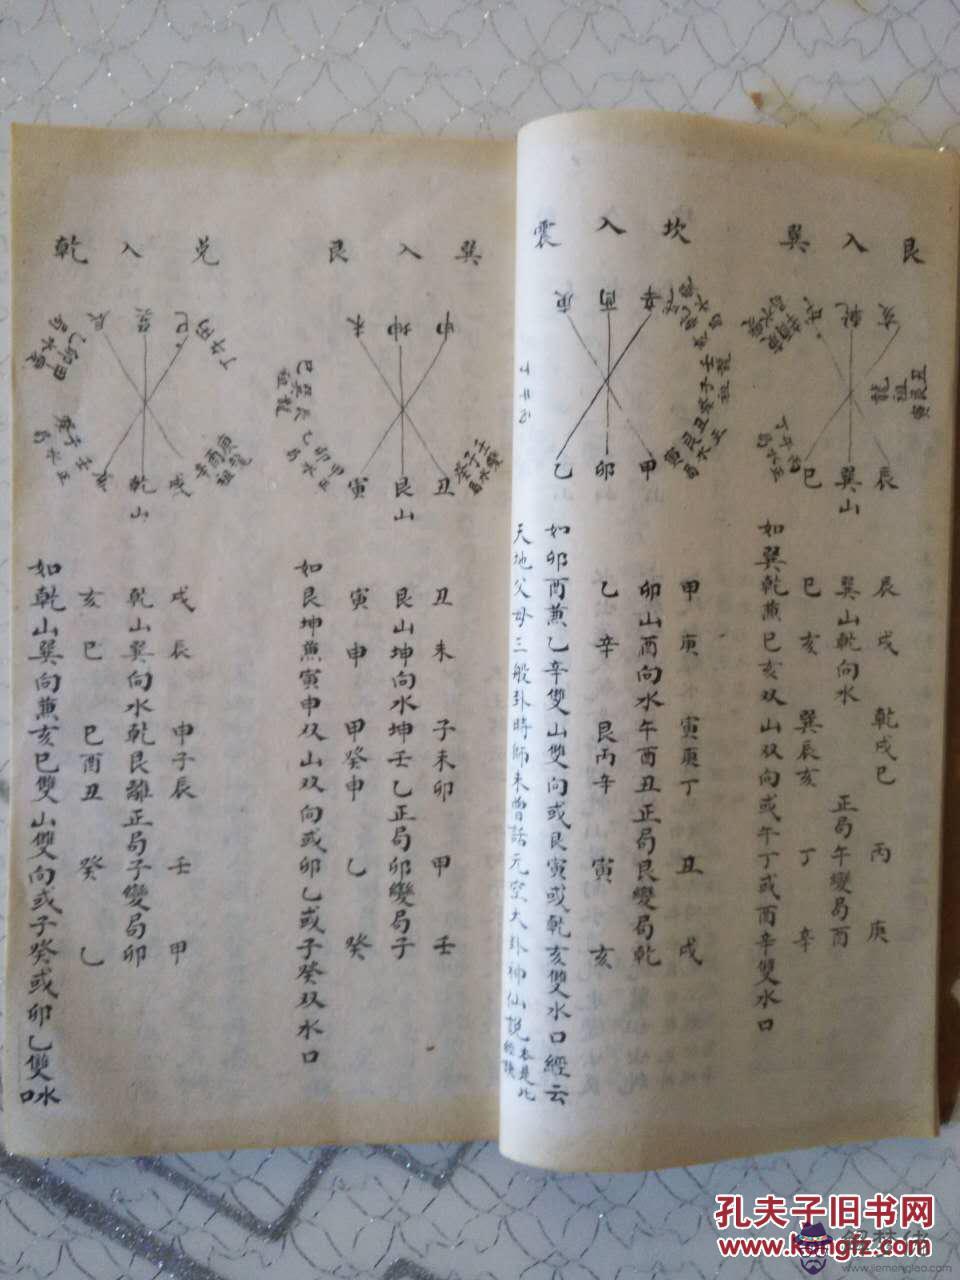 艮入巽
亥 乾 戌
龍祖 丑艮寅
巳 巽山 辰
辰 戌 乾戌巳 丙 庚
巽山乾向水 正局午變局酉
巳 亥 巽辰亥 丁 辛
如巽乾蒸巳亥双山双向或午丁或酉辛雙水口
坎入震
辛 酉 庚
壬子癸 龍祖
丑艮寅 正水局
乙 卯 甲
甲 庚 寅庚丁 丑 戌
卯山酉向水午酉丑正局艮變局乾
乙 辛 艮丙辛 寅 亥
如卯酉蒸乙辛雙山雙向或艮寅或乾亥雙水口經云
天地父母三般卦時師未曾話元空大卦神仙說本是此經訣
巽入艮
申 坤 未
巳巽辰 祖龍
寅 艮山 丑
丑 未 子未卯 甲 壬
艮山坤向水坤壬乙正局卯變局子
寅 申 甲癸申 乙 癸
如艮坤蒸寅申双山双向或卯乙或子癸双水口
兌入乾
巳 巽 辰
丁午丙
庚酉辛 祖龍
亥 乾山 戌
戌 辰 申子辰 壬 甲
乾山巽向水乾艮離正局子變局卯
亥 巳 巳酉丑 癸 乙
如乾山巽向蒸亥巳雙山雙向或子癸或卯乙雙水口
孔夫子旧书网
www.kongfz.com
解梦佬
www.jiemenglao.com